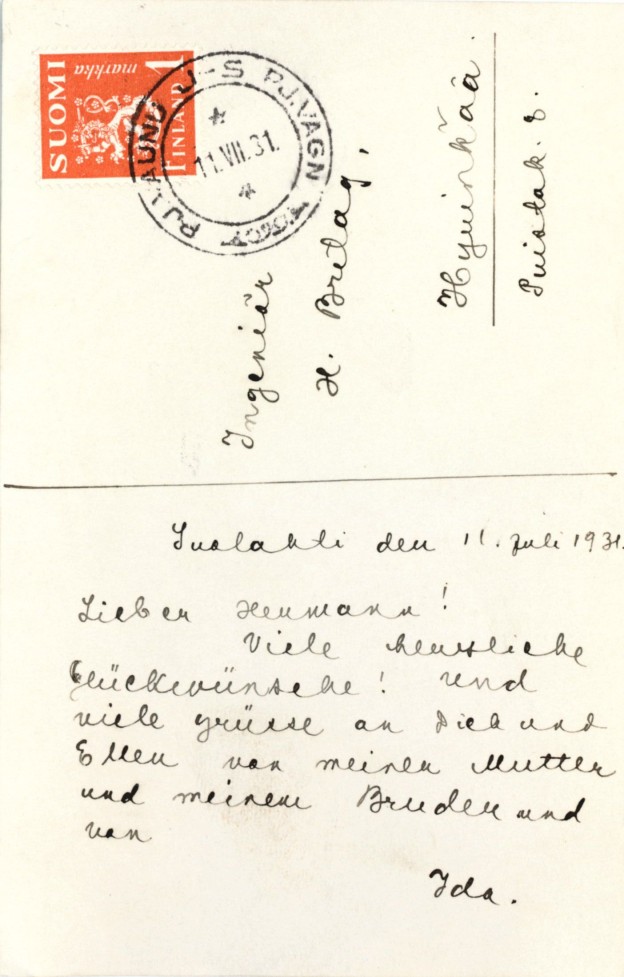 SUOMI
markka
1
FINLAND
P.J.VAUNU J-S P.J.VAGN
11.VII.31.
Ingeniär
H. Bretag,
Hyvinkää.
Puistok. 8.
Suolahti den 11. Juli 1931.
Lieber Hermann!
Viele herzliche
Glückwünsche! und
viele grüsse an Dich und
Ellen von meiner Mutter
und meinem Bruder und
von
Ida.